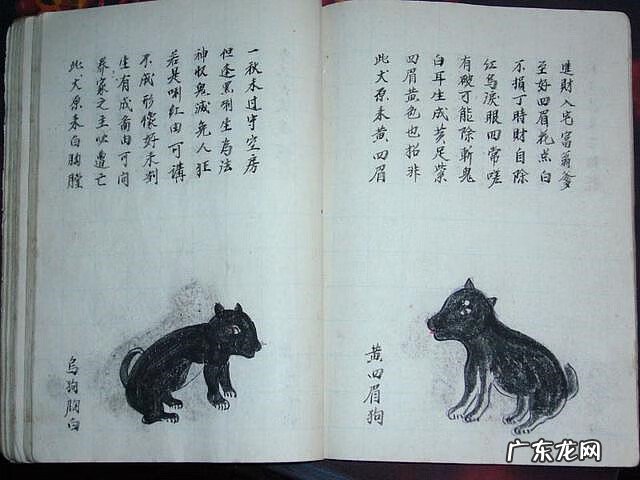 此犬原来白胸膛
养家之主必遭亡
生有成畜由可间
不成形像好未刺
若是唎红由可講
神收鬼滅免人狂
但逢黑唎生為法
一秋未过守空房
乌狗胸白
此犬原来黄四眉
四眉黄色也招非
白耳生成黄足紫
有破可能除斬鬼
红乌淚眼四常嗟
不损丁時財自除
至好四眉花点白
進財入宅富翁爹
黄四眉狗
广东龙网